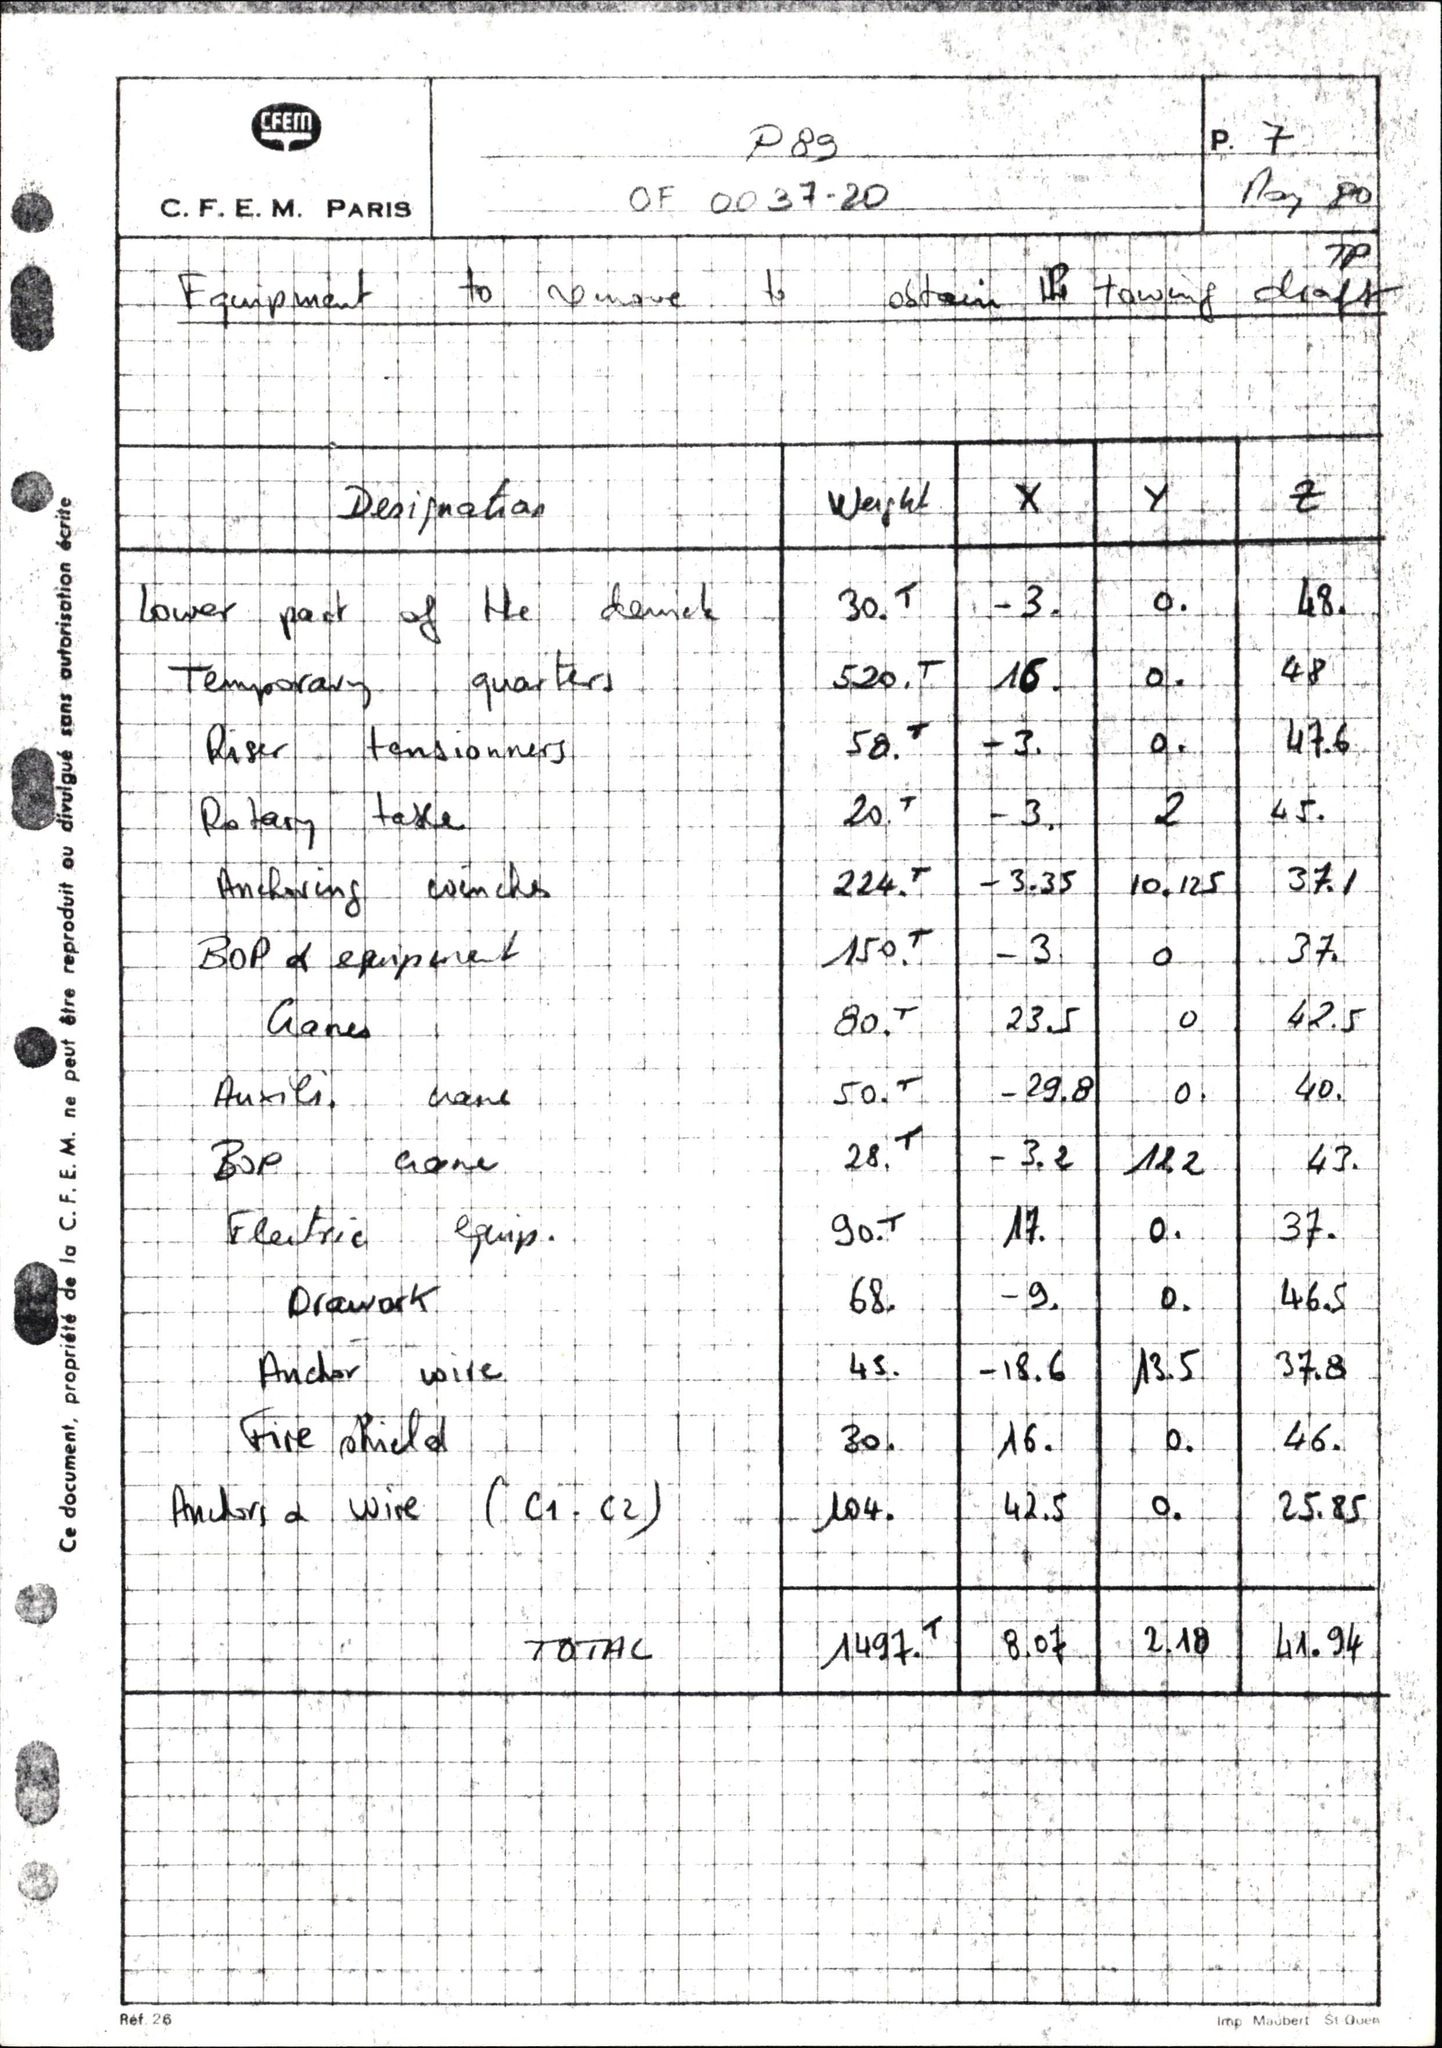 CFEM
C. F. E. M. PARIS
P 89
OF 0037-20
P. 7
May 80
TP
Equipment to remove to obtain the towing draft
Designation Weight X Y Z
Lower part of the derrick 30.T -3. 0. 48.
Temporary quarters 520.T 16. 0. 48
Riser tensionners 58.T -3. 0. 47.6
Rotary table 20.T -3. 2 45.
Anchoring winches 224.T -3.35 10.125 37.1
BOP & equipment 150.T -3 0 37.
Cranes 80.T 23.5 0 42.5
Auxili. crane 50.T -29.8 0. 40.
BOP crane 28.T -3.2 12.2 43.
Electric equip. 90.T 17. 0. 37.
Drawork 68. -9. 0. 46.5
Anchor wire 45. -18.6 13.5 37.8
Fire shield 30. 16. 0. 46.
Anchors & wire (C1. C2) 104. 42.5 0. 25.85
TOTAL 1497.T 8.07 2.18 41.94
Ce document, propriété de la C. F. E. M. ne peut être reproduit ou divulgué sans autorisation écrite
Réf. 26
Imp Maubert St-Ouen